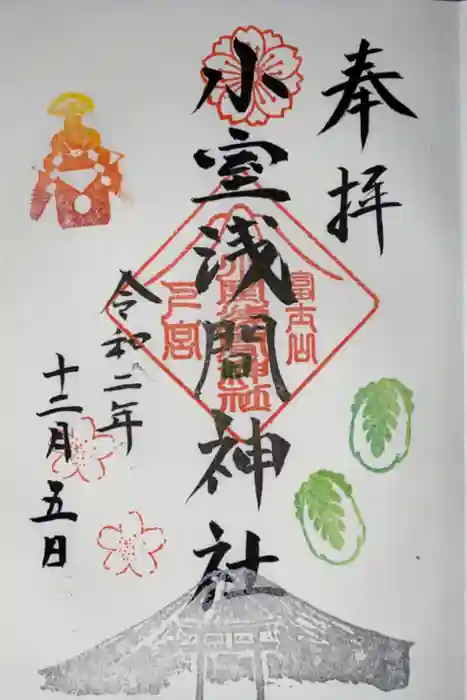 奉拝
小室浅間神社
富士山
下宮
小室浅間神社
令和二年
十二月五日